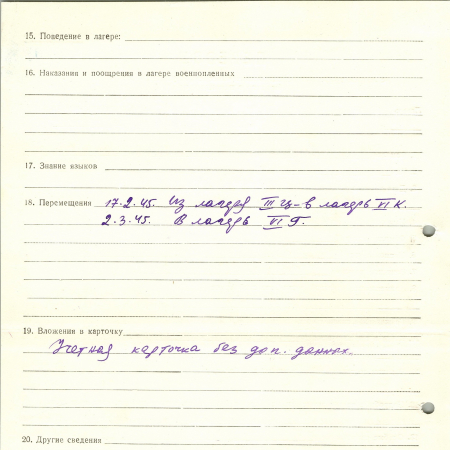 15. Поведение в лагере:
16. Наказания и поощрения в лагере военнопленных
17. Знание языков
18. Перемещения 17.2.45. Из лагеря III Ц - в лагерь XI К.
2.3.45. В лагерь VI Г.
19. Вложения в карточку
Учетная карточка без доп. данных.
20. Другие сведения